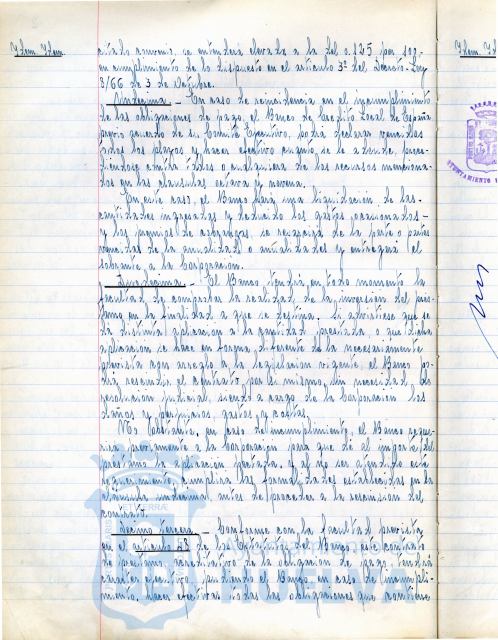 Idem. Idem. Idem. Idem.
citado convenio, se entenderá elevada a la del 0.125 por 100,
en cumplimiento de lo dispuesto en el artículo 3º del Decreto-Ley
8/66 de 3 de Octubre.
Undécima. - En caso de reincidencia en el incumplimiento
de las obligaciones de pago, el Banco de Crédito Local de España
previo acuerdo de su Comité Ejecutivo, podrá declarar vencidos
todos los plazos y hacer efectivo cuanto se le adeude, proce-
diéndose contra todos o cualquiera de los recursos menciona-
dos en las cláusulas octava y novena.
En este caso, el Banco hará una liquidación de las
cantidades ingresadas y deducido los gastos ocasionados
y los premios de cobranzas, se resarcirá de la parte o partes
vencidas de la anualidad o anualidades y entregará el
sobrante a la Corporación.
Duodécima. - El Banco tendrá en todo momento la
facultad de comprobar la realidad de la inversión del prés-
tamo en la finalidad a que se destina. Si advirtiese que se
da distinta aplicación a la cantidad prestada, o que dicha
aplicación se hace en forma diferente de la necesariamente
prevista con arreglo a la legislación vigente, el Banco po-
drá rescindir el contrato por sí mismo, sin necesidad de
resolución judicial, siendo a cargo de la Corporación los
daños y perjuicios, gastos y costas.
No obstante, en caso de incumplimiento, el Banco reque-
rirá previamente a la Corporación para que dé al importe del
préstamo la aplicación pactada. Y al no ser atendido este
requerimiento, cumplirá las formalidades establecidas en la
cláusula undécima, antes de proceder a la rescisión del
contrato.
Décimo tercera. - Conforme con la facultad prevista
en el artículo 48 de los Estatutos del Banco, este contrato
de préstamo, acreditativo de la obligación de pago, tendrá
carácter ejecutivo, pudiendo el Banco, en caso de incumpli-
miento, hacer efectivas todas las obligaciones que contiene